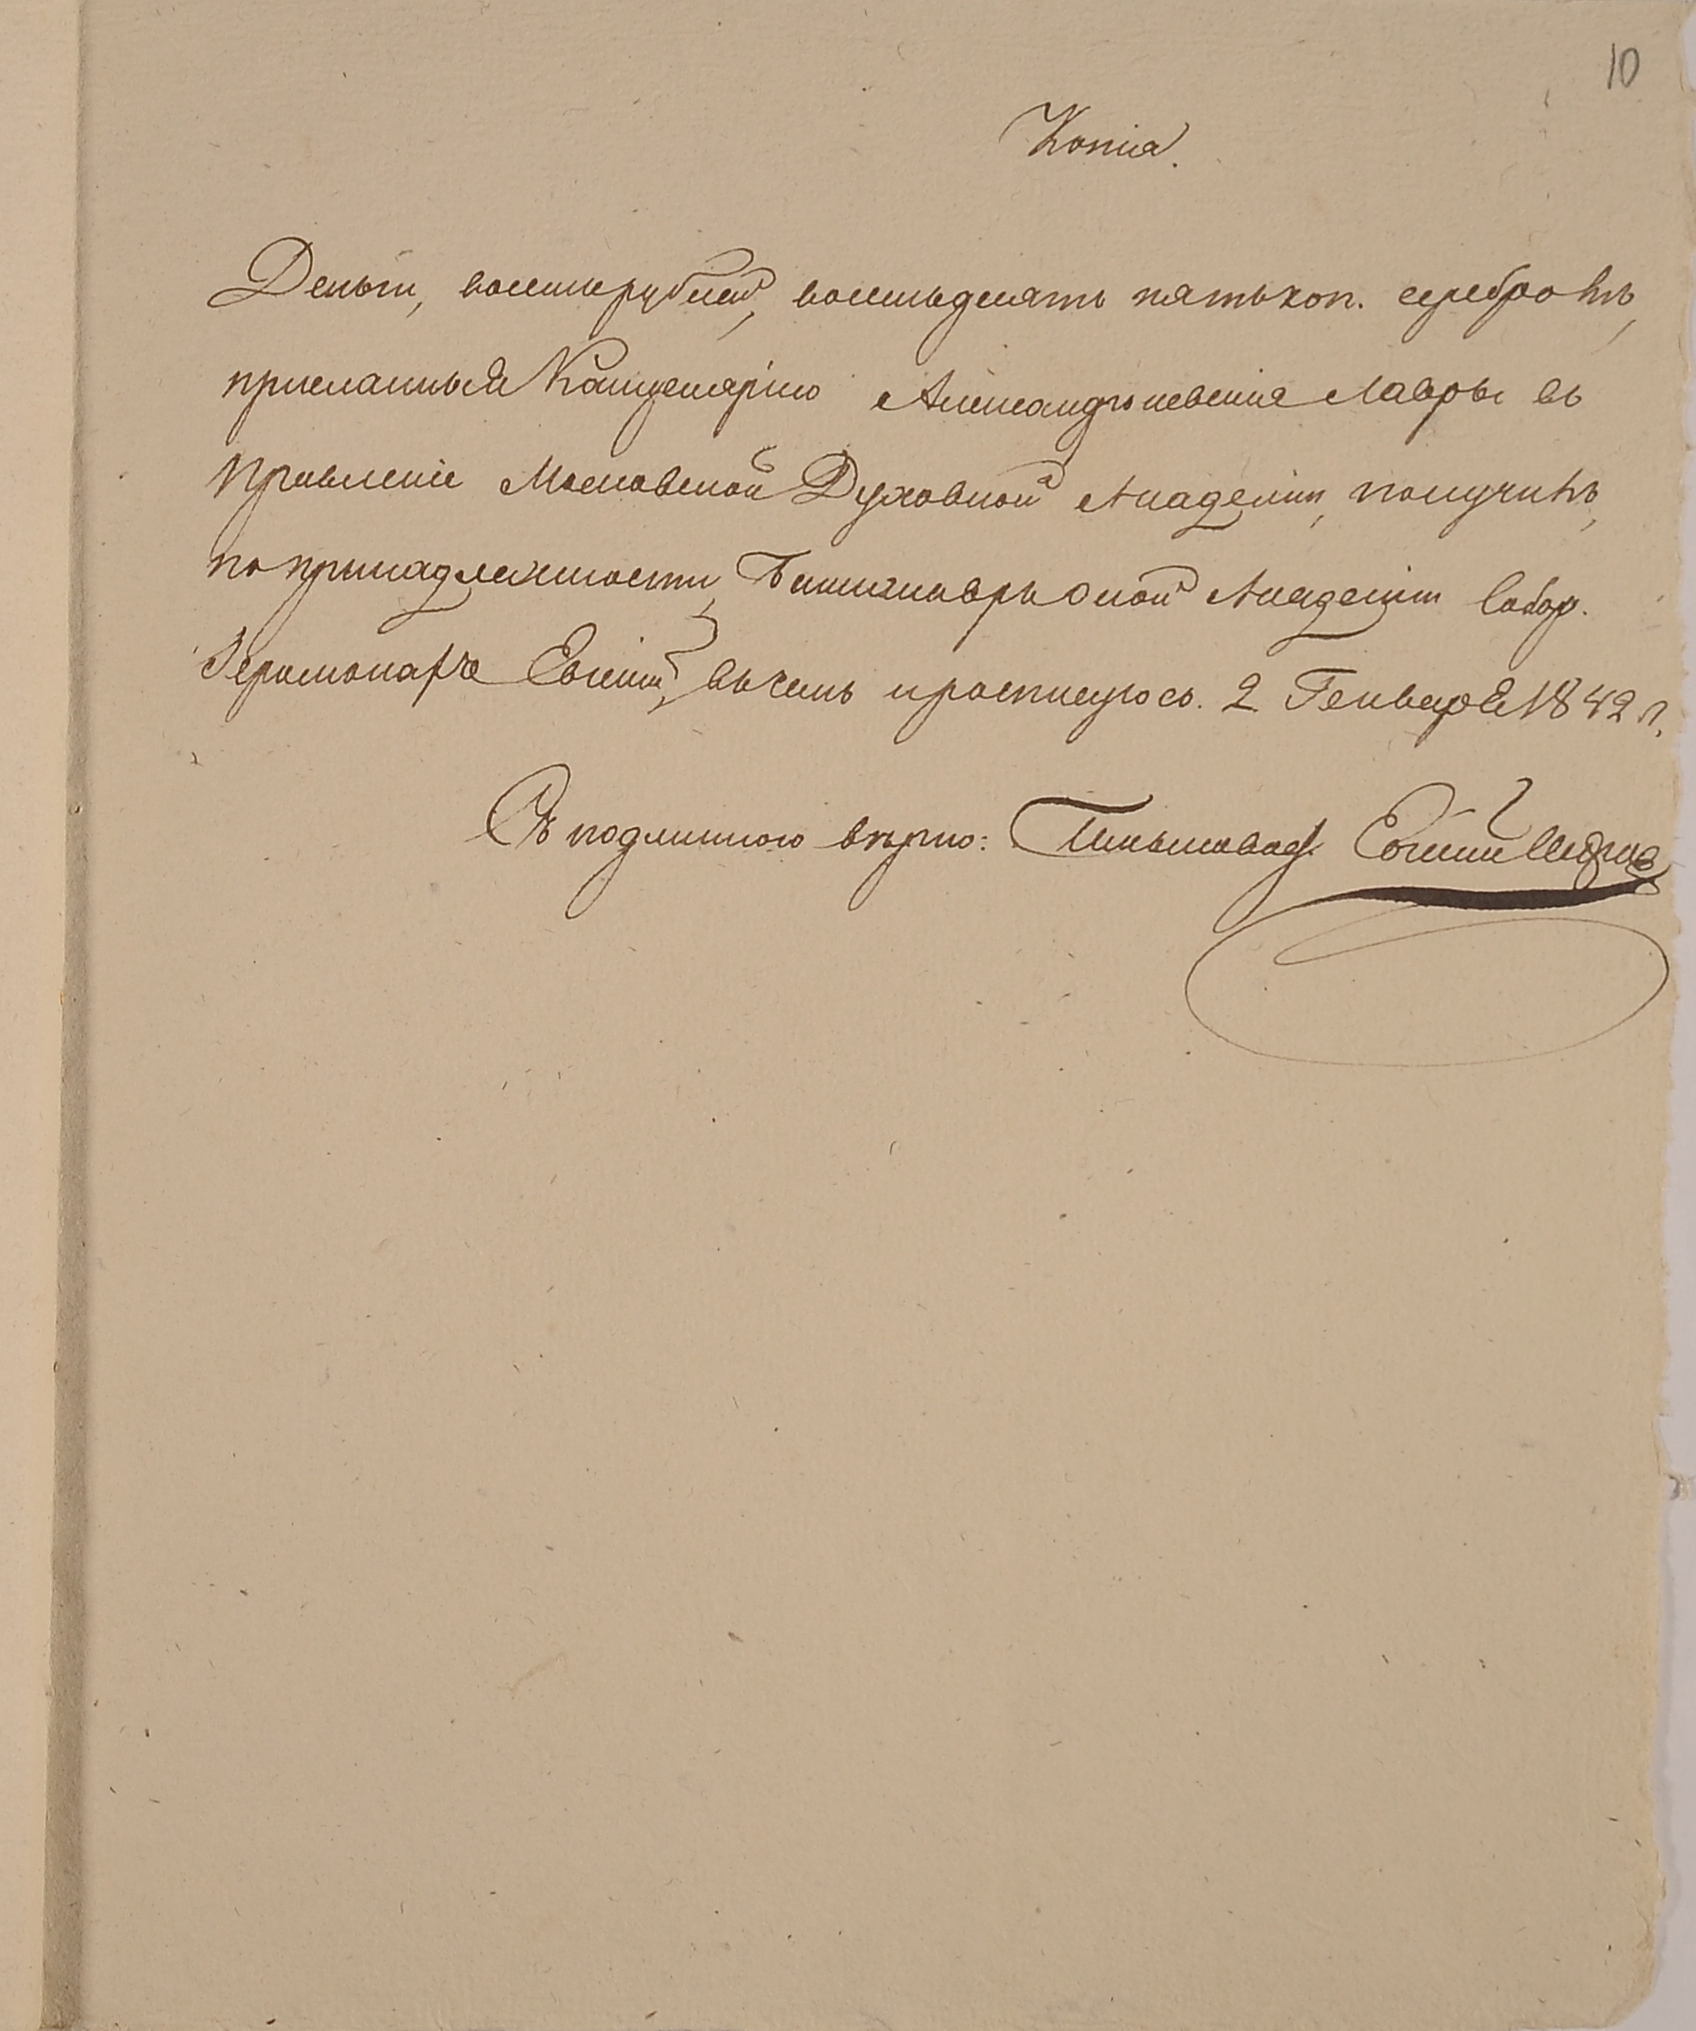 10
Копія.
Деньги, восемь рублей, восемьдесятъ пять коп. серебромъ,
присланныя Канцеляріею Александроневскія Лавры въ
Правленіе Московской Духовной Академіи, получилъ,
по принадлежности, Библіотекарь оной Академіи Собор.
Іеромонахъ Евгеній, въ чемъ и росписуюсь. 2 Генваря 1842 г.
Съ подлинною вѣрно: Письмовод. Евгеній